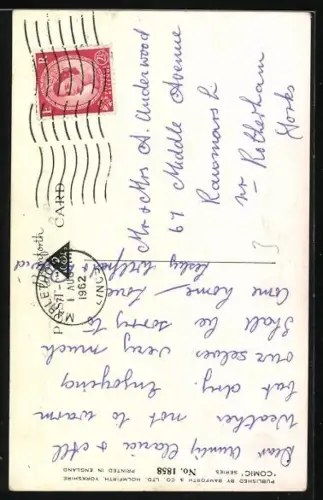 PUBLISHED BY BAMFORTH & CO. LTD. HOLMFIRTH, YORKSHIRE
"COMIC" SERIES No. 1858 PRINTED IN ENGLAND
Dear Aunty & All
Weather not to warm
but dry. Enjoying
our selves very much
Shall be sorry to
Come home — Love
Lesley
POST CARD
Bamforth
MABLETHORPE
AUG
1962
LINCS
Mr & Mrs A. Underwood
67 Middle Avenue
Rawmarsh
nr Rotherham
Yorks